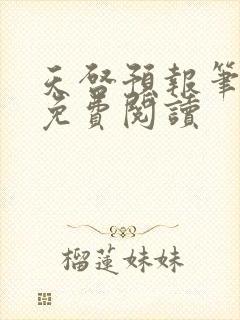 天啓預報筆
免費閱讀
榴蓮妹妹